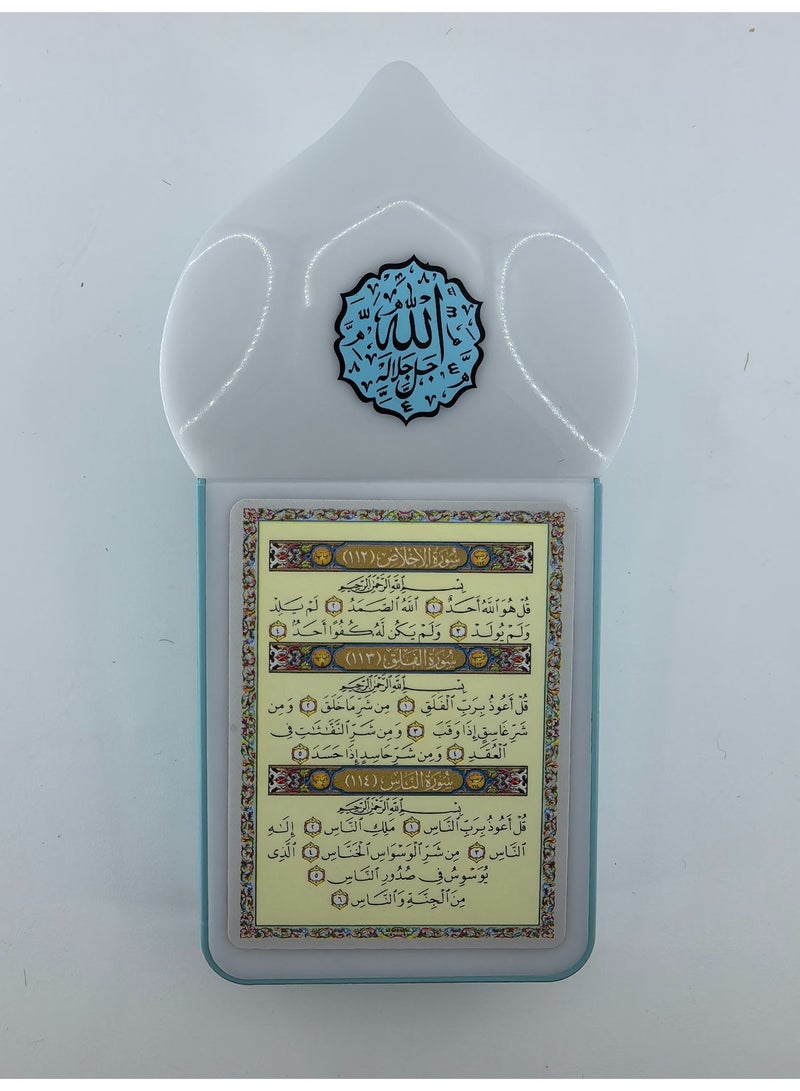 الله
جل جلاله
سُورَةُ الإِخْلَاصِ (١١٢)
بِسْمِ ٱللَّهِ ٱلرَّحْمَٰنِ ٱلرَّحِيمِ
قُلْ هُوَ ٱللَّهُ أَحَدٌ ١ ٱللَّهُ ٱلصَّمَدُ ٢ لَمْ يَلِدْ
وَلَمْ يُولَدْ ٣ وَلَمْ يَكُن لَّهُ كُفُوًا أَحَدٌ ٤
سُورَةُ الفَلَقِ (١١٣)
بِسْمِ ٱللَّهِ ٱلرَّحْمَٰنِ ٱلرَّحِيمِ
قُلْ أَعُوذُ بِرَبِّ ٱلْفَلَقِ ١ مِن شَرِّ مَا خَلَقَ ٢ وَمِن
شَرِّ غَاسِقٍ إِذَا وَقَبَ ٣ وَمِن شَرِّ ٱلنَّفَّٰثَٰتِ فِى
ٱلْعُقَدِ ٤ وَمِن شَرِّ حَاسِدٍ إِذَا حَسَدَ ٥
سُورَةُ النَّاسِ (١١٤)
بِسْمِ ٱللَّهِ ٱلرَّحْمَٰنِ ٱلرَّحِيمِ
قُلْ أَعُوذُ بِرَبِّ ٱلنَّاسِ ١ مَلِكِ ٱلنَّاسِ ٢ إِلَٰهِ
ٱلنَّاسِ ٣ مِن شَرِّ ٱلْوَسْوَاسِ ٱلْخَنَّاسِ ٤ ٱلَّذِى
يُوَسْوِسُ فِى صُدُورِ ٱلنَّاسِ ٥
مِنَ ٱلْجِنَّةِ وَٱلنَّاسِ ٦